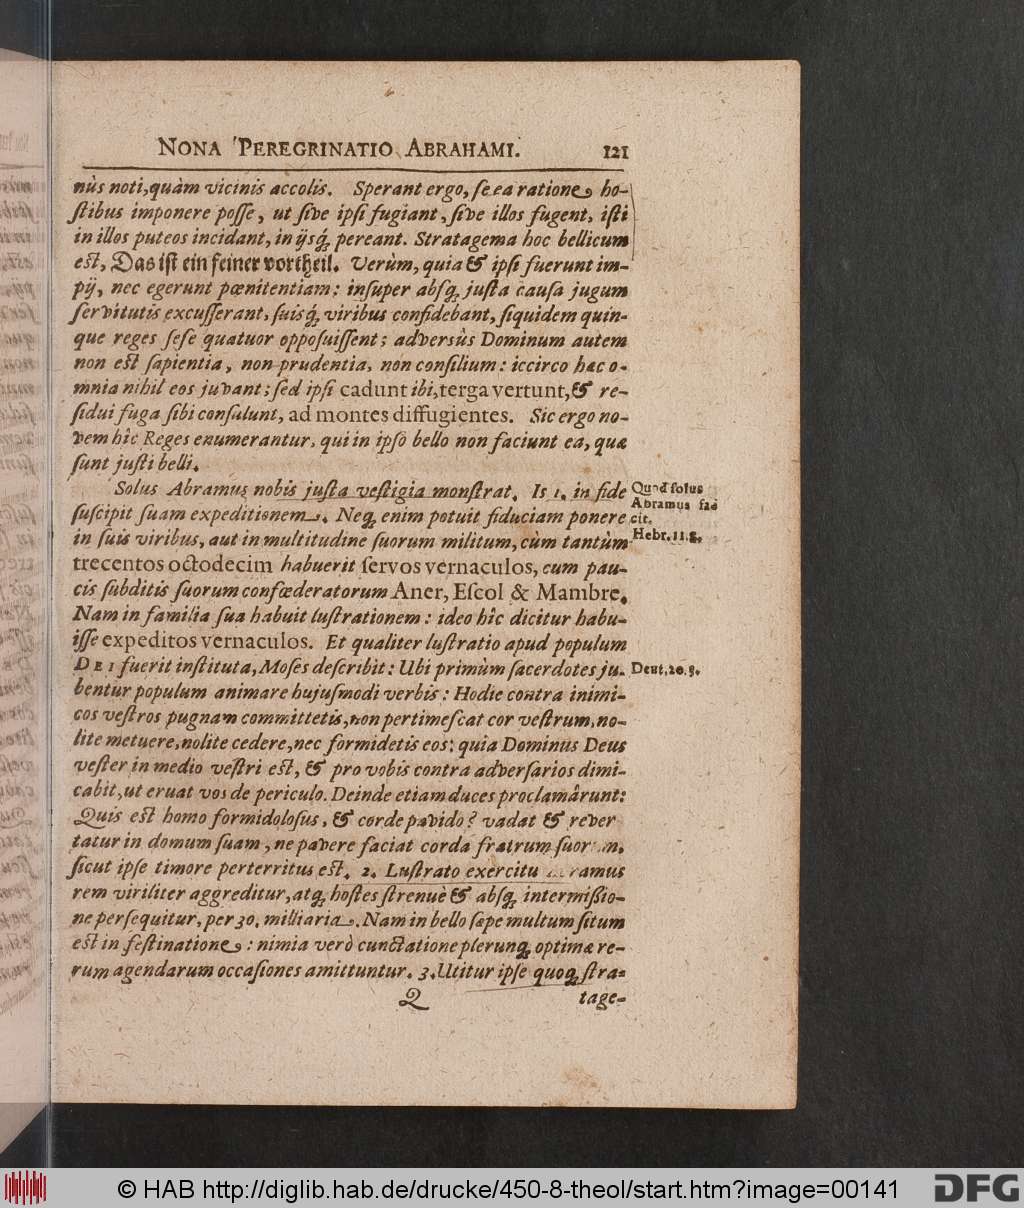 NONA PEREGRINATIO ABRAHAMI. 121
nùs noti, quàm vicinis accolis. Sperant ergo, ſe ea ratione ho-
ſtibus imponere poſſe, ut ſive ipſi fugiant, ſive illos fugent, iſti
in illos puteos incidant, in ijsq́; pereant. Stratagema hoc bellicum
eſt, Das iſt ein feiner vortheil. Verùm, quia & ipſi fuerunt im-
pij, nec egerunt pœnitentiam; inſuper abſq; juſta cauſa jugum
ſervitutis excuſſerant, ſuisq́; viribus confidebant, ſiquidem quin-
que reges ſeſe quatuor oppoſuiſſent; adversùs Dominum autem
non eſt ſapientia, non prudentia, non conſilium: iccirco hæc o-
mnia nihil eos juvant; ſed ipſi cadunt ibi, terga vertunt, & re-
ſidui fuga ſibi conſulunt, ad montes diffugientes. Sic ergo no-
vem hîc Reges enumerantur, qui in ipſo bello non faciunt ea, quæ
ſunt juſti belli.
Solus Abramus nobis juſta veſtigia monſtrat. Is 1. in fide
ſuſcipit ſuam expeditionem. Neq; enim potuit fiduciam ponere
in ſuis viribus, aut in multitudine ſuorum militum, cùm tantùm
trecentos octodecim habuerit ſervos vernaculos, cum pau-
cis ſubditis ſuorum confœderatorum Aner, Eſcol & Mambre.
Nam in familia ſua habuit luſtrationem: ideo hîc dicitur habu-
iſſe expeditos vernaculos. Et qualiter luſtratio apud populum
DEI fuerit inſtituta, Moſes deſcribit: Ubi primùm ſacerdotes ju-
bentur populum animare hujuſmodi verbis: Hodie contra inimi-
cos veſtros pugnam committetis, non pertimeſcat cor veſtrum, no-
lite metuere, nolite cedere, nec formidetis eos: quia Dominus Deus
veſter in medio veſtri eſt, & pro vobis contra adverſarios dimi-
cabit, ut eruat vos de periculo. Deinde etiam duces proclamârunt:
Quis eſt homo formidoloſus, & corde pavido? vadat & rever
tatur in domum ſuam, ne pavere faciat corda fratrum ſuorum,
ſicut ipſe timore perterritus eſt. 2. Luſtrato exercitu Abramus
rem viriliter aggreditur, atq; hoſtes ſtrenuè & abſq; intermiſsio-
ne perſequitur, per 30. milliaria. Nam in bello ſæpe multum ſitum
eſt in feſtinatione: nimia verò cunctatione plerunq; optimæ re-
rum agendarum occaſiones amittuntur. 3. Utitur ipſe quoq; ſtra-
Q tage-
Quod ſolus
Abramus fa
cit.
Hebr. 11. 8.
Deut. 20. 3.
© HAB http://diglib.hab.de/drucke/450-8-theol/start.htm?image=00141
DFG